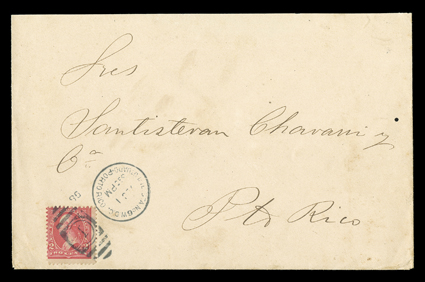 Sres
Santistevan Chavarri y
Ca
Pto Rico
PM
2